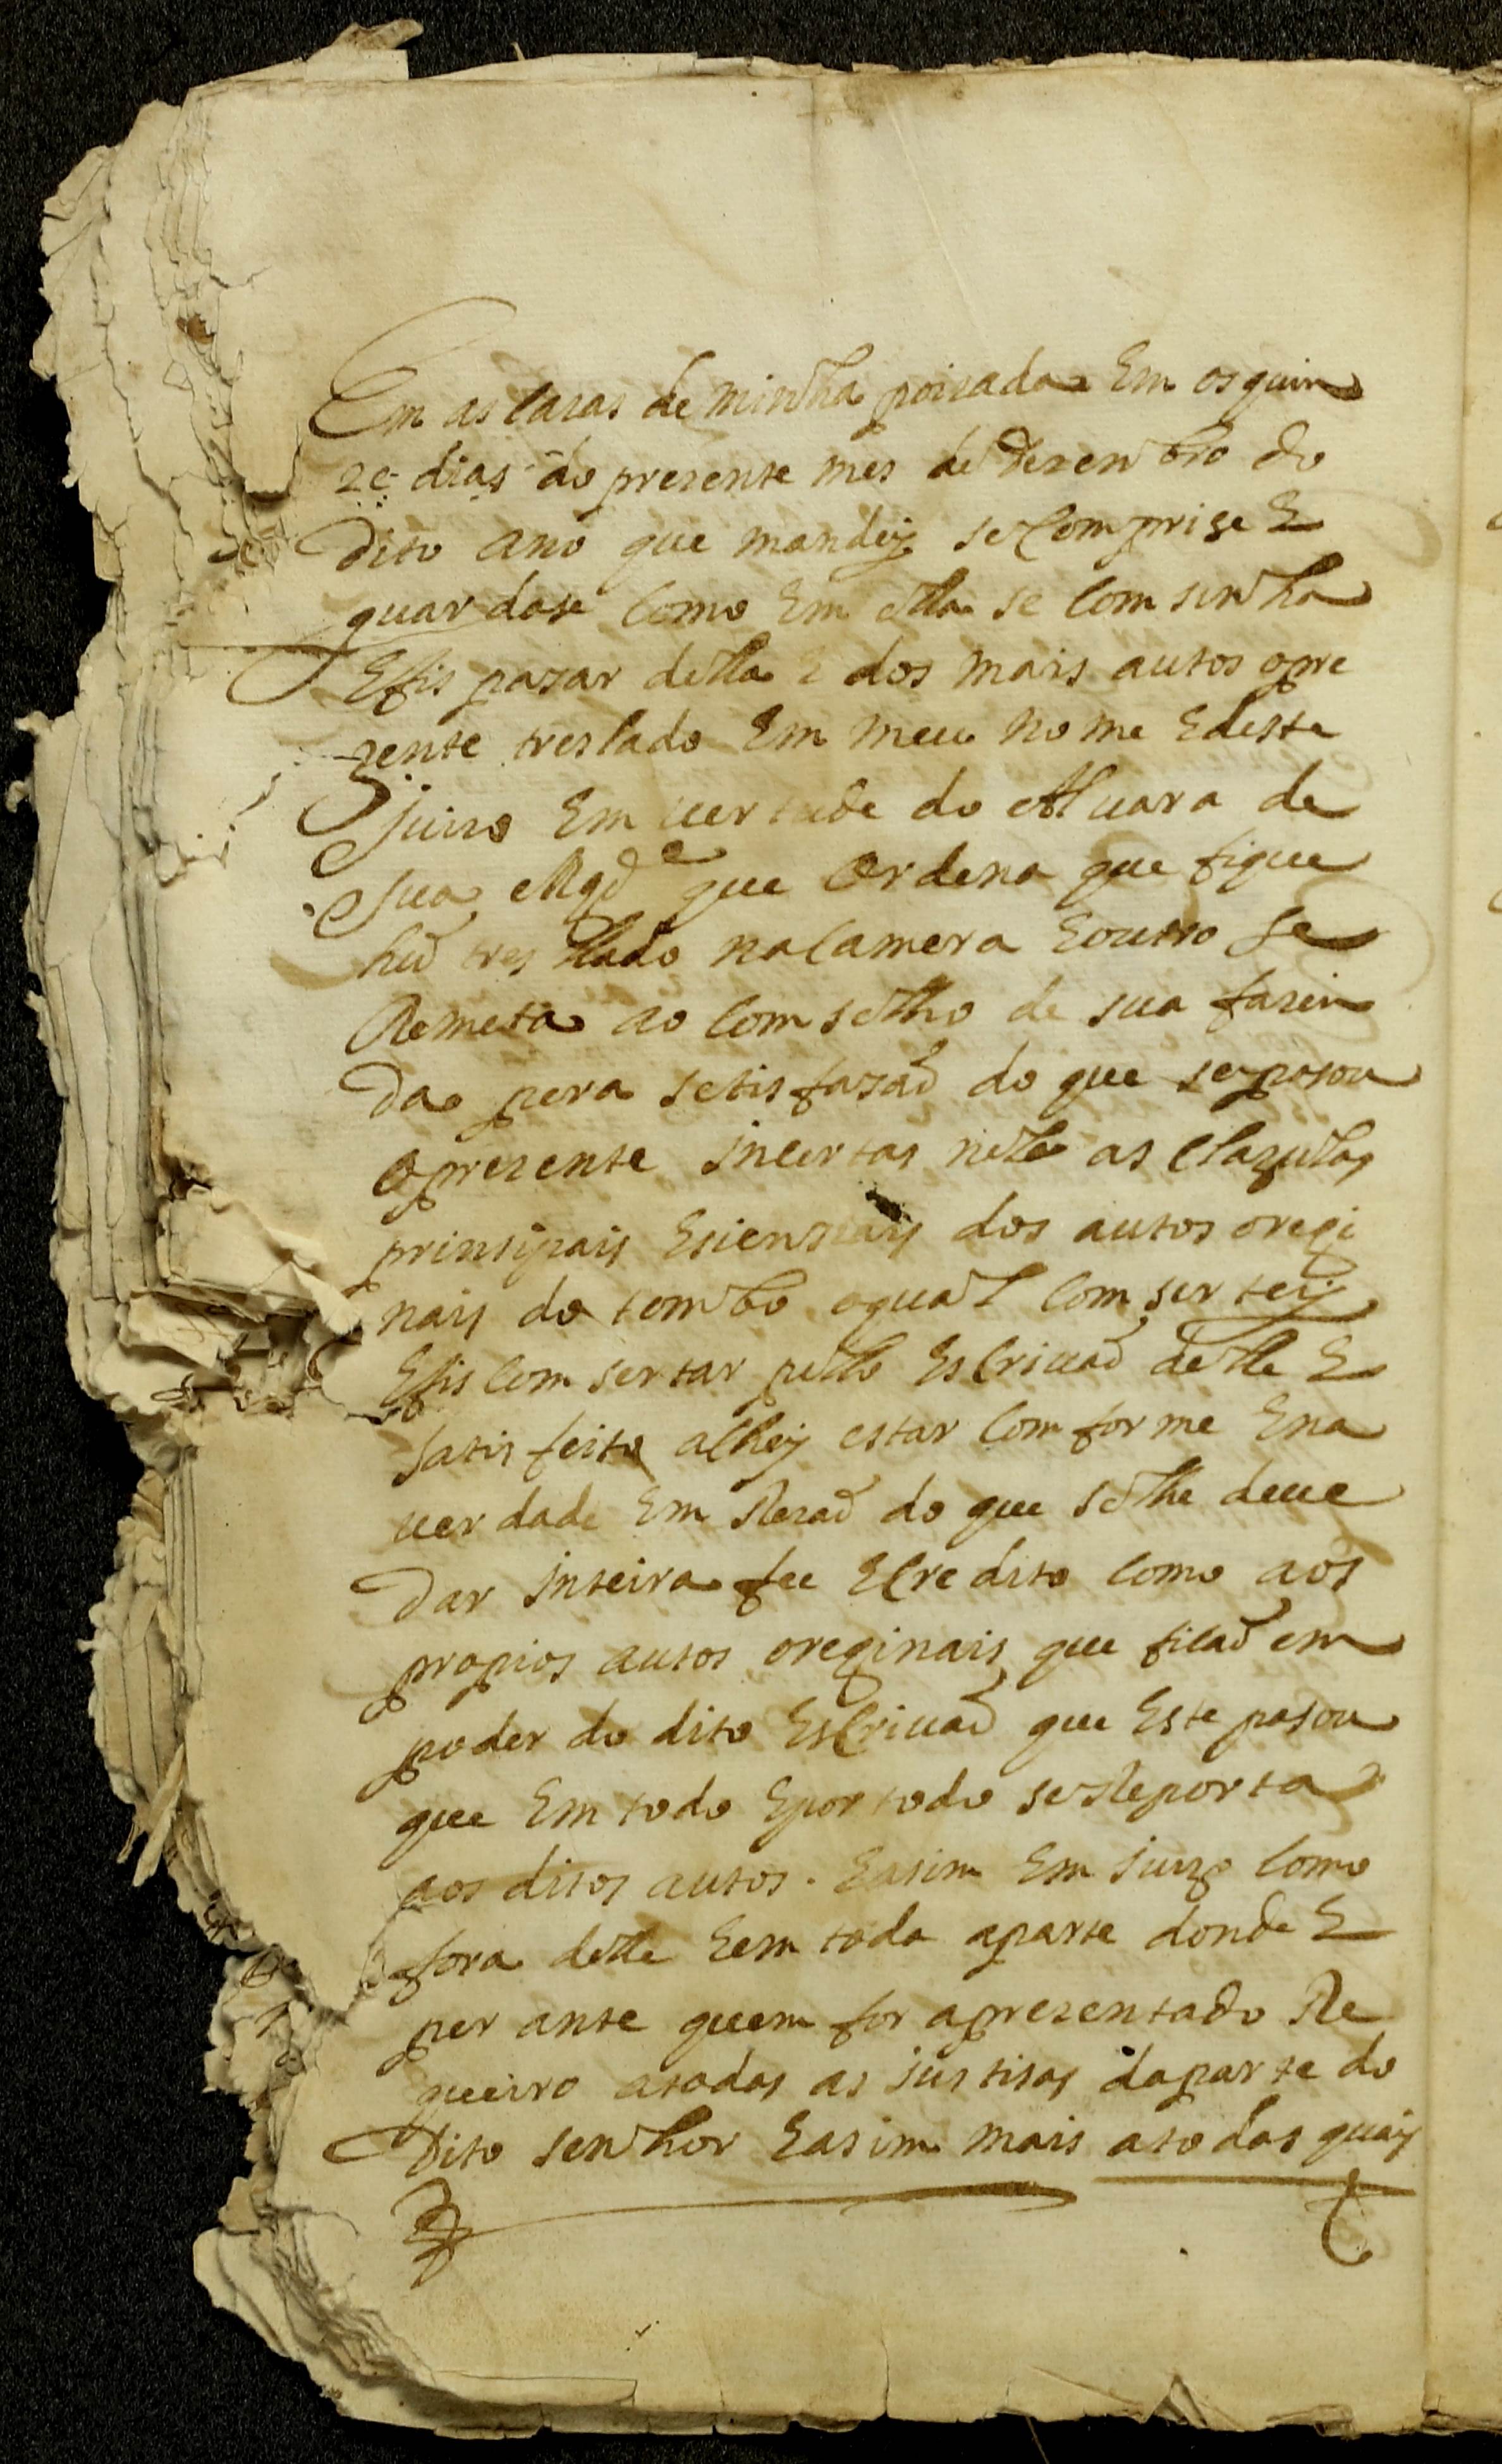 Em as casas de minha poizada Em os quin
ze dias do prezente mes de Dezenbro do
Dito ano que mandej se Comprise E
guardase Como Em ella se Comtinha
E fis pasar della E dos mais autos o pre
zente treslado Em meu nome E deste
juizo Em uertude do Aluara de
sua Magde que Ordena que fique
hũ treslado na Camera E outro se
Remeta ao Comselho de sua fazen
Da pera setisfazaõ do que se pasou
O prezente incertas nelle as Clazulas
prinsipais Esiensiais dos autos oregi
nais do tombo o qual Comsertej
E fis Comsertar pello EsCriuaõ delle E
satisfeito achej estar Comforme E na
uerdade Em Rezaõ do que se lhe deue
Dar inteira fee E Credito Como aos
propios autos oreginais que ficaõ em
poder do dito EsCriuaõ que Este pasou
que Em todo E por todo se Reporta
aos ditos autos. E asim Em juizo Como
fora delle E em toda a parte donde E
per ante quem for aprezentado Re
queiro a todas as justisas da parte do
Dito senhor E asim mais a todas quais